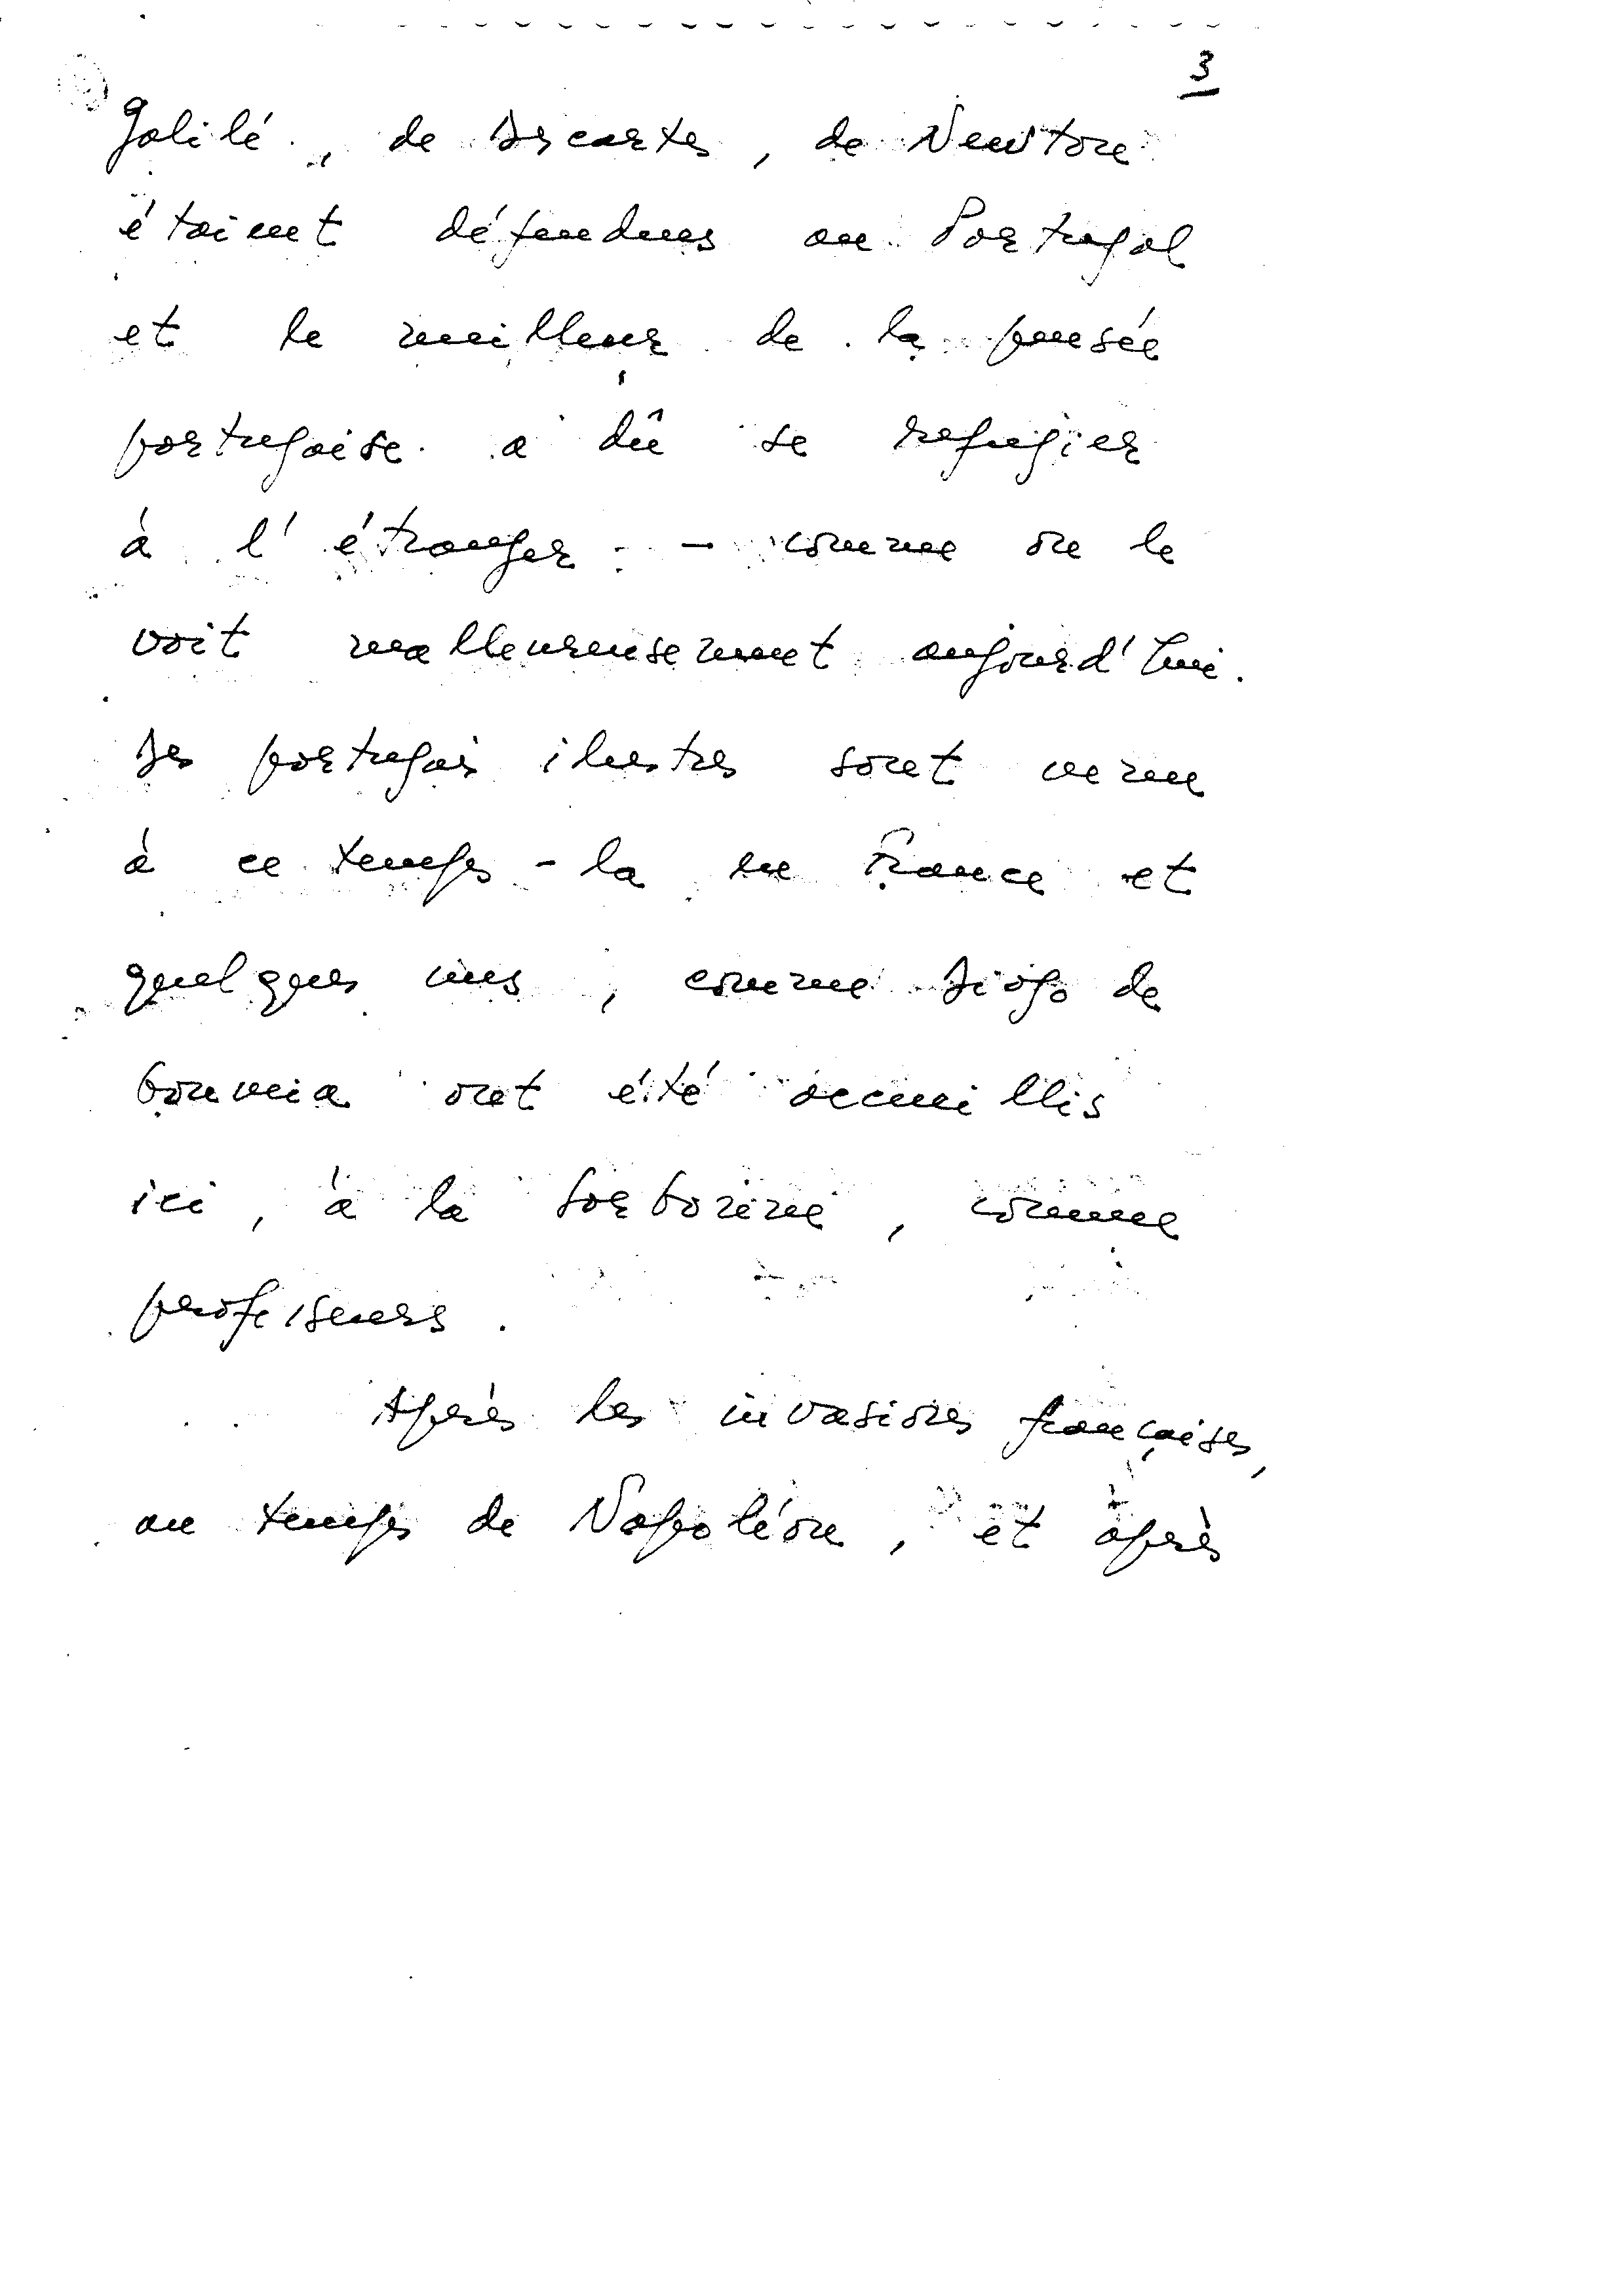 3
Galilé, de Descartes, de Newton
étaient défendues au Portugal
et le meilleur de la pensée
portugaise a dû se refugier
à l'étranger - comme on le
voit malheureusement aujourd'hui.
Des portugais ilustres sont venu
à ce temps-la en France et
quelques uns, comme Diogo de
Gouveia ont été accueillis
ici, à la Sorbonne, comme
professeurs.
Après les invasions françaises,
au temps de Napoléon, et après